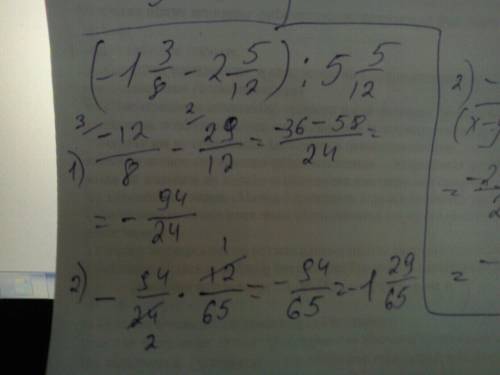 (-1 3/8 - 2 5/12) : 5 5/12
1) 3/ -12/8 - 2/ 29/12 = -36-58/24 =
= - 94/24
2) - 94/24 2 · 12/65 1 = - 94/65 = -1 29/65
2) -
(x-y
= -2/2
= -